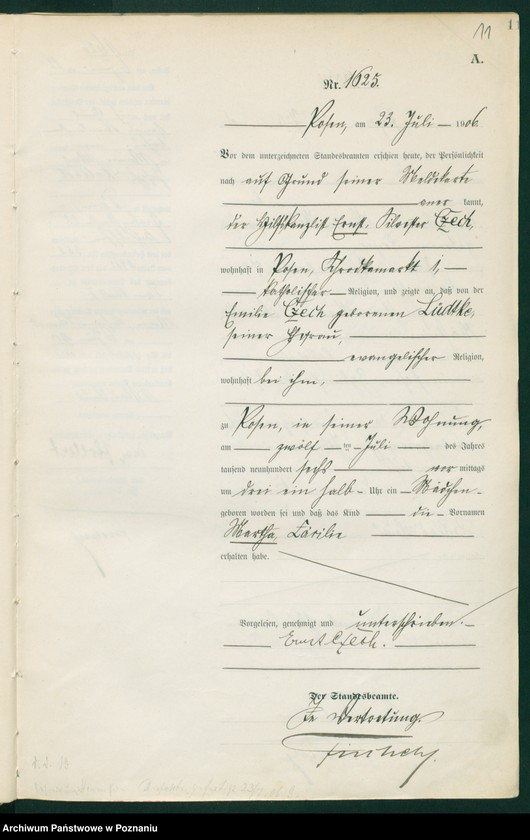 11
1
A.
Nr. 1625.
Posen, am 23. Juli 1906.
Vor dem unterzeichneten Standesbeamten erschien heute, der Persönlichkeit
nach auf Grund seiner Meldekarte
aner kannt,
der Hilfskanzlist Ernst, Silvester Czech,
wohnhaft in Posen, 1,
katholischer Religion, und zeigte an, daß von der
Emilie Czech geborenen Lüdtke,
seiner Ehefrau,
evangelischer Religion,
wohnhaft bei ihm,
zu Posen, in seiner Wohnung,
am zwölf ten Juli des Jahres
tausend neunhundert sechs vor mittags
um drei ein halb Uhr ein Mädchen
geboren worden sei und daß das Kind die Vornamen
Martha, Cäcilie
erhalten habe.
Vorgelesen, genehmigt und unterschrieben.
Ernst Czech.
Der Standesbeamte.
In Vertretung.
Archiwum Państwowe w Poznaniu